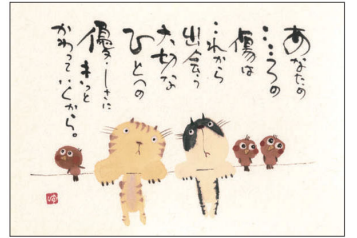 あなたの
こころの
傷は
これから
出会う
大切な
ひとつの
優しさに
きっと
かわっていくから。